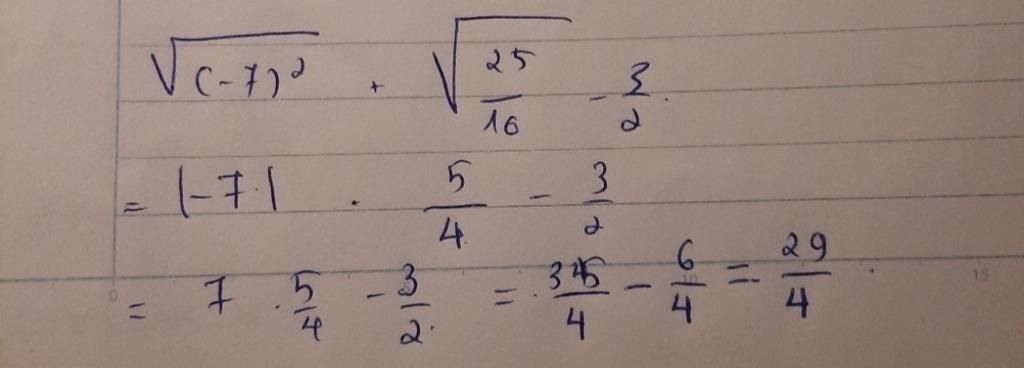 √(-7)² + √25/16 - 3/2.
= |-7| . 5/4 - 3/2
= 7 . 5/4 - 3/2. = 35/4 - 6/4 = 29/4.
0 10 15